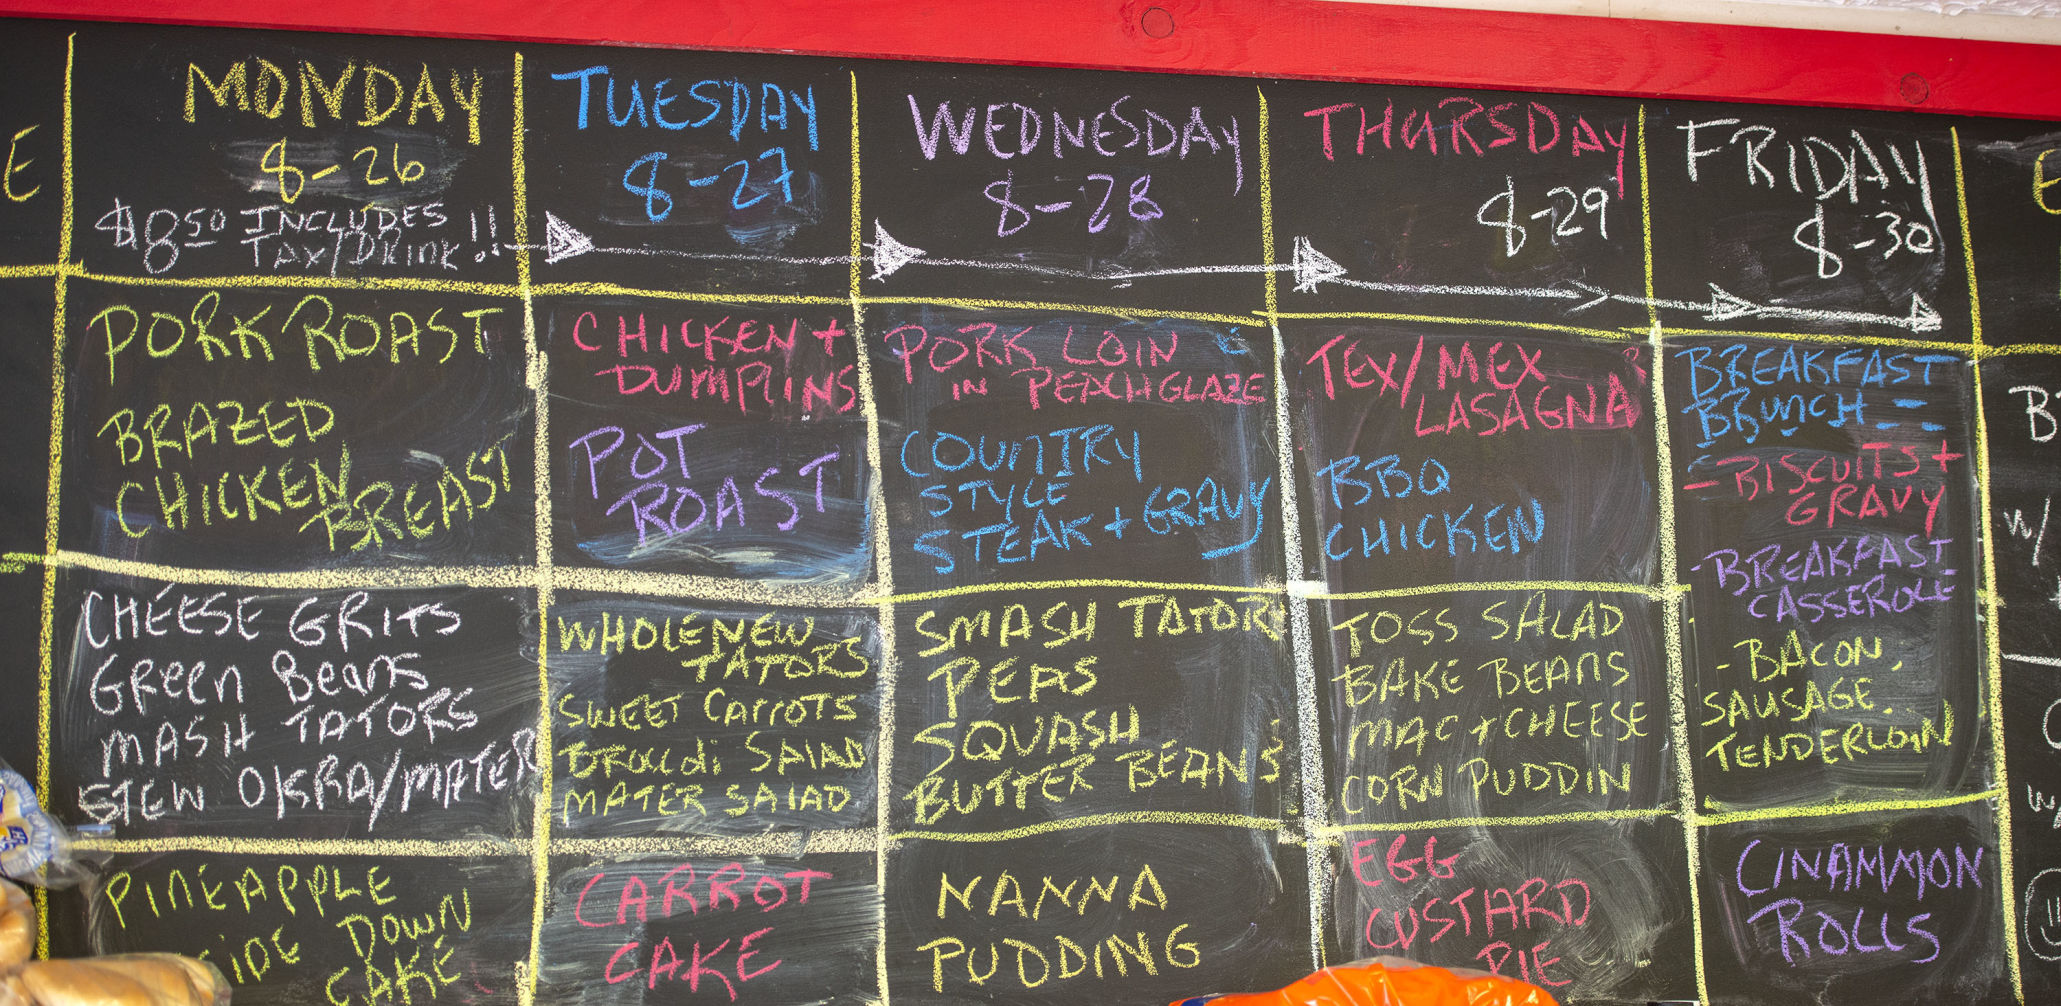 E
MONDAY
8-26
$8.50 INCLUDES
TAX/DRINK!!
PORK ROAST
BRAZED
CHICKEN
BREAST
CHEESE GRITS
GREEN BEANS
MASH TATORS
STEW OKRA/MATER
PINEAPPLE
SIDE DOWN
CAKE
TUESDAY
8-27
CHICKEN +
DUMPLINS
POT
ROAST
WHOLE NEW
TATORS
SWEET CARROTS
BROCCOLI SALAD
MATER SALAD
CARROT
CAKE
WEDNESDAY
8-28
PORK LOIN
IN PEACH GLAZE
COUNTRY
STYLE
STEAK + GRAVY
SMASH TATORS
PEAS
SQUASH
BUTTER BEANS
NANNA
PUDDING
THURSDAY
8-29
TEX/MEX
LASAGNA
BBQ
CHICKEN
TOSS SALAD
BAKE BEANS
MAC + CHEESE
CORN PUDDIN
EGG
CUSTARD
PIE
FRIDAY
8-30
BREAKFAST
BRUNCH --
- BISCUITS +
GRAVY
- BREAKFAST
CASSEROLE
- BACON,
SAUSAGE.
TENDERLOIN
CINAMMON
ROLLS
W/